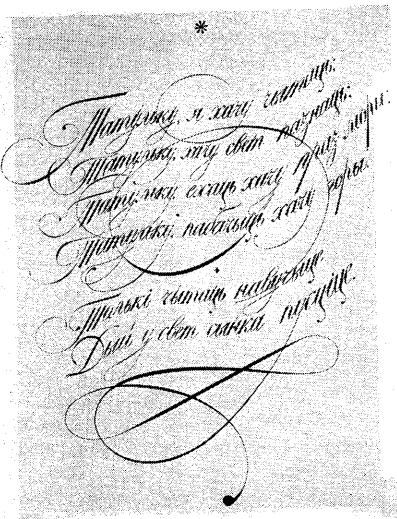 *
Татульку, я хачу чытаць;
Татульку, свет пазнаць;
Татульку, ехаць хачу праз моры;
Татульку, пабачыць хачу
Толькі чытаць навучыце
Дыі у свет сынка пусціце.